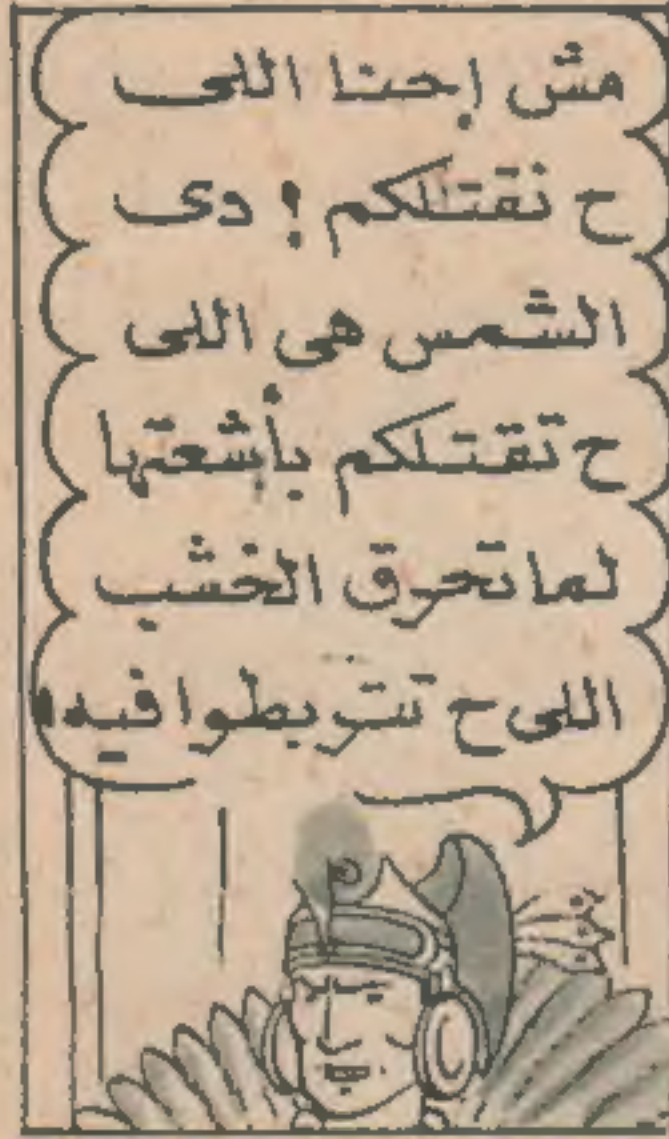 مش إحنا اللى
ح نقتلكم ! دى
الشمس هى اللى
ح تقتلكم بأشعتها
لما تحرق الخشب
اللى ح تتربطوا فيه